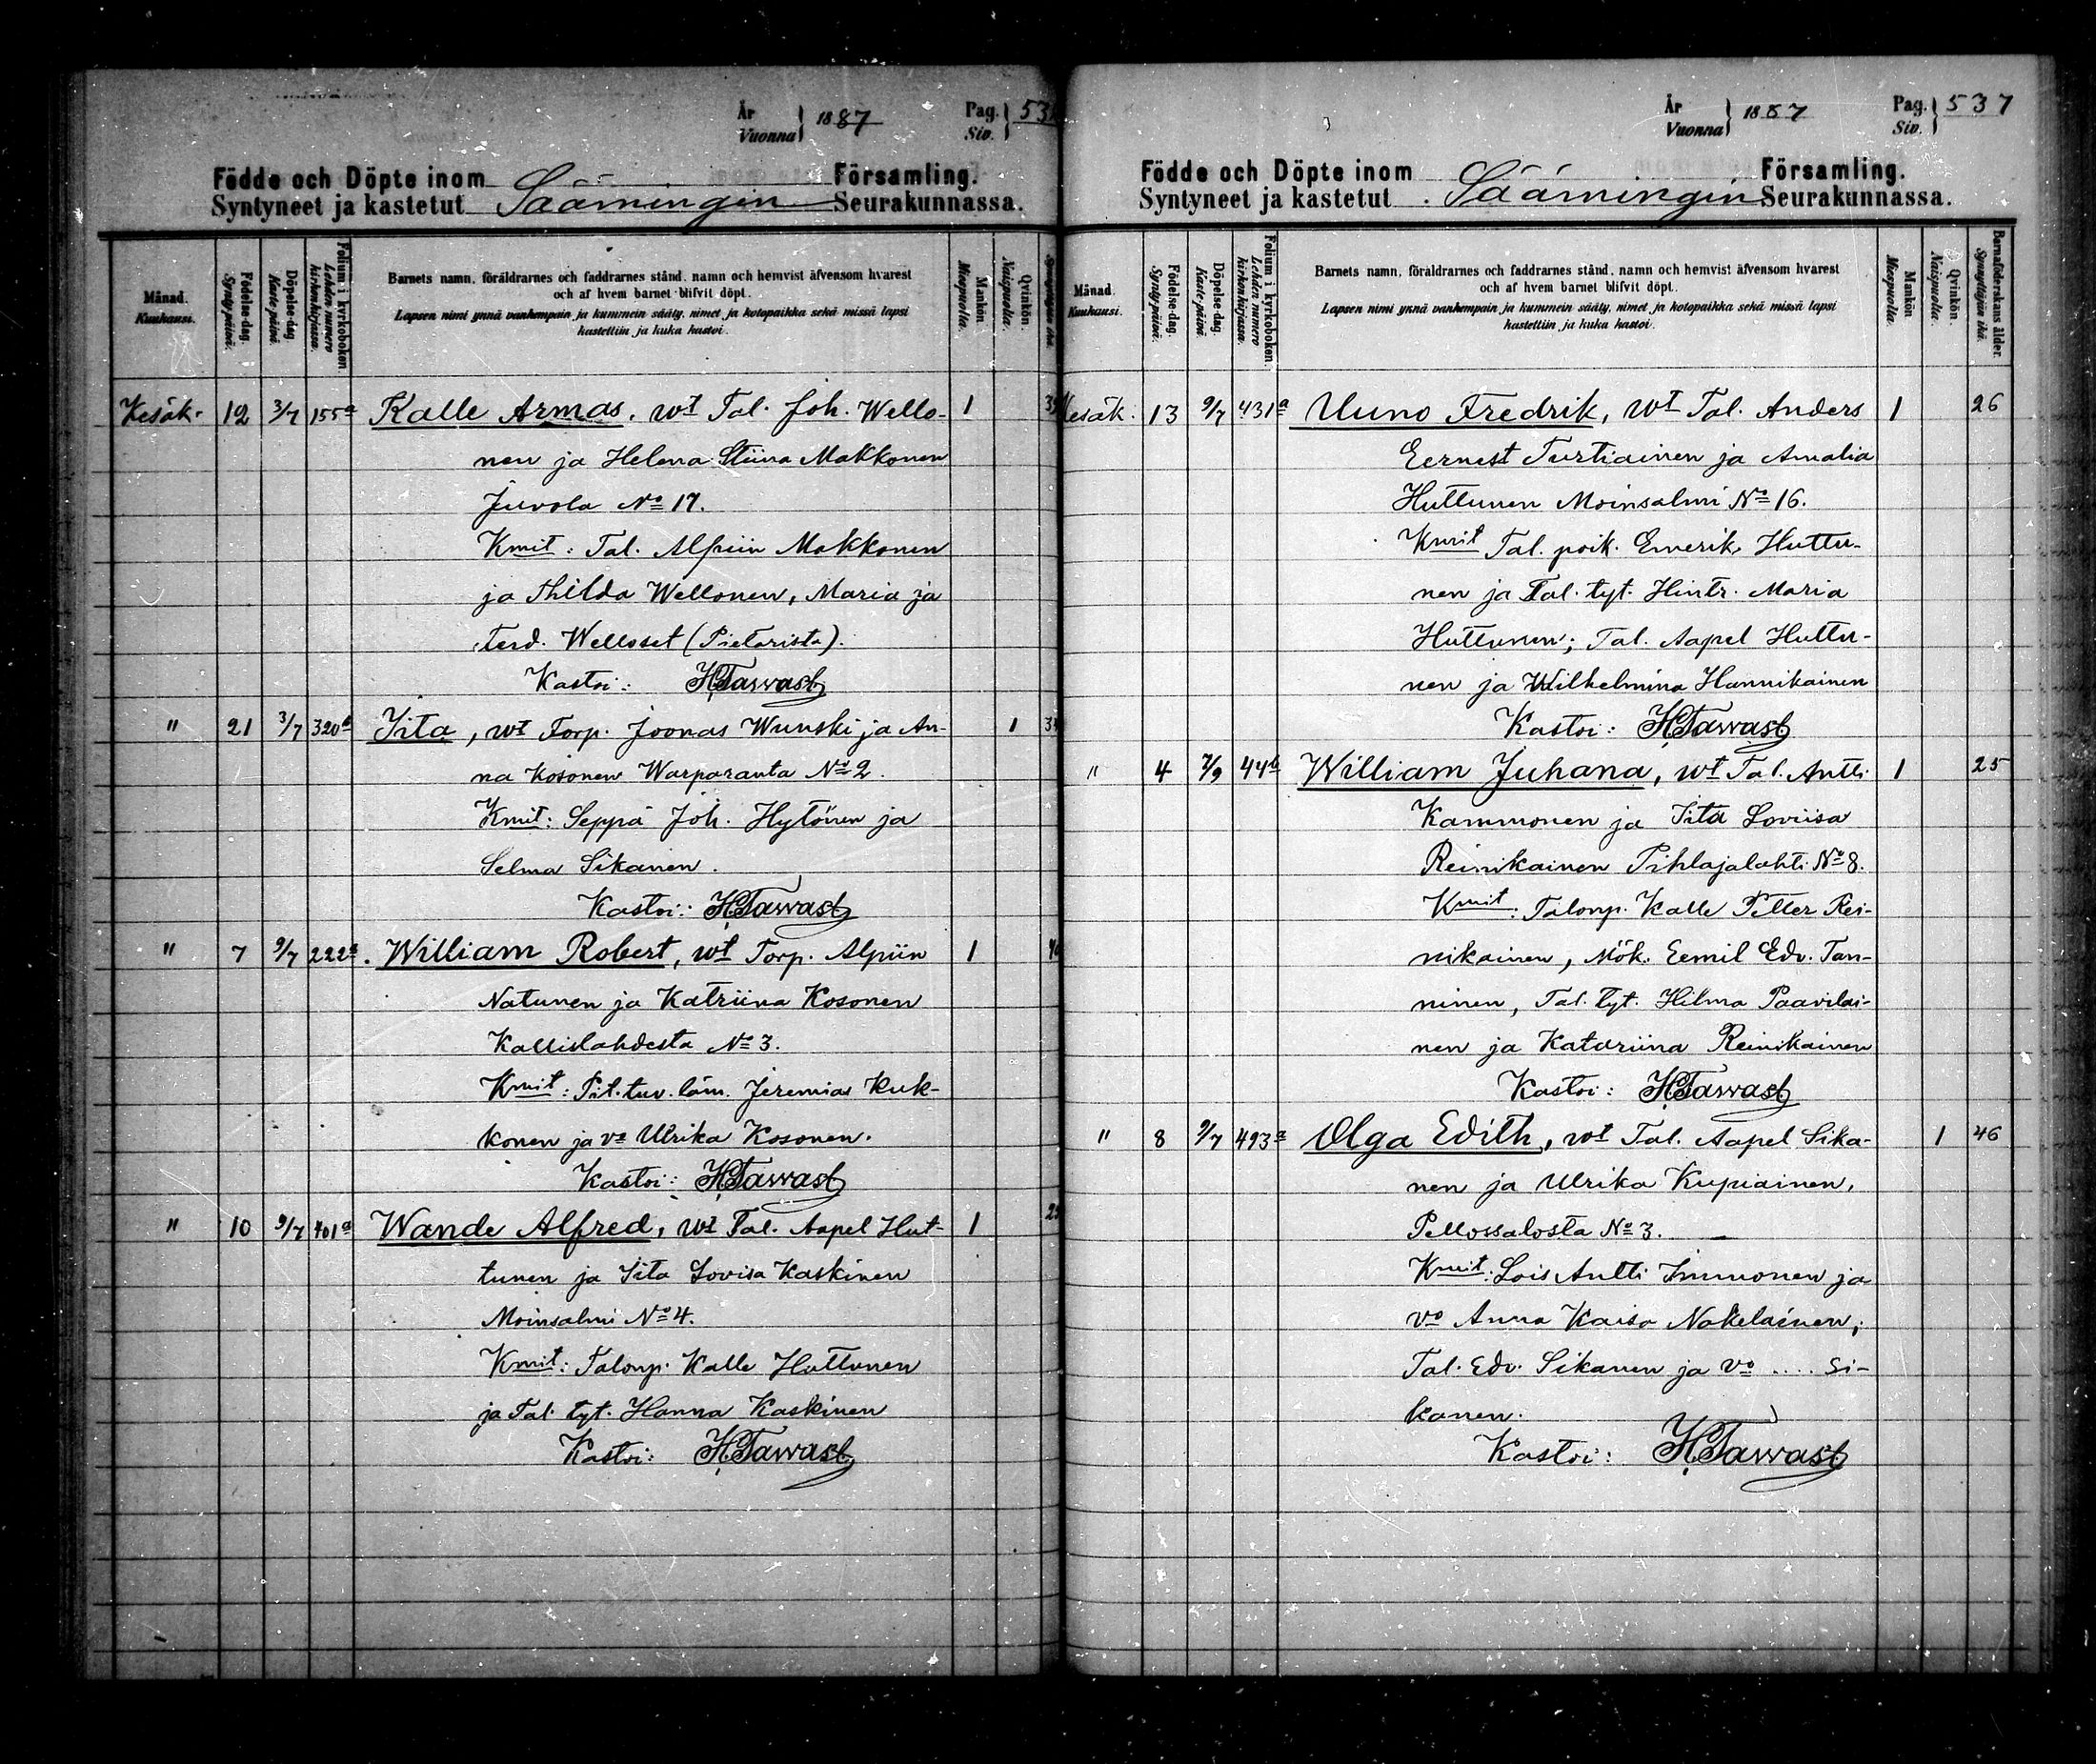 År
Vuonna } 1887
Pag.
Siv. }
Födde och Döpte inom Församling.
Syntyneet ja kastetut Säämingin Seurakunnassa.
Månad.
Kuukausi.
Födelse-dag.
Syntypäivä.
Döpelse-dag.
Kaste-päivä.
Folium i kyrkoboken.
Lehden numero
kirkonkirjassa.
Barnets namn, föräldrarnes och faddrarnes stånd, namn och hemvist äfvensom hvarest
och af hvem barnet blifvit döpt.
Lapsen nimi ynnä vanhempain ja kummein sääty, nimet ja kotopaikka sekä missä lapsi
kastettiin ja kuka kastoi.
Mankön
Miespuolia.
Qvinkön.
Naispuolia.
Kesäk. 12 3/7 155a Kalle Armas. wt Tal. Joh. Wello- 1
nen ja Helena Stiina Makkonen
Juvola No 17.
Kmit: Tal. Alpiin Makkonen
ja Thilda Wellonen, Maria ja
Ferd. Welloset (Pietarista).
Kastoi: HTawast
" 21 3/7 320a Iita, wt Torp. Joonas Wunski ja An- 1
na Kosonen Warparanta No 2.
Kmit: Seppä Joh. Hytönen ja
Selma Sikanen.
Kastoi: HTawast
" 7 9/7 222a. William Robert, wt Torp. Alpiin 1
Natunen ja Katriina Kosonen
Kallislahdesta No 3.
Kmit: Pit. tuv. läm. Jeremias Kuk-
konen ja vo Ulrika Kosonen.
Kastoi: HTawast
" 10 9/7 401a Wande Alfred, wt Tal. Aapel Hut- 1
tunen ja Iita Lovisa Kaskinen
Moinsalmi No 4.
Kmit: Talonp. Kalle Huttunen
ja Tal. tyt. Hanna Kaskinen
Kastoi: HTawast
År
Vuonna } 1887
Pag.
Siv. } 537
Födde och Döpte inom Församling.
Syntyneet ja kastetut Säämingin Seurakunnassa.
Månad.
Kuukausi.
Födelse-dag.
Syntypäivä.
Döpelse-dag.
Kaste-päivä.
Folium i kyrkoboken.
Lehden numero
kirkonkirjassa.
Barnets namn, föräldrarnes och faddrarnes stånd, namn och hemvist äfvensom hvarest
och af hvem barnet blifvit döpt.
Lapsen nimi ynnä vanhempain ja kummein sääty, nimet ja kotopaikka sekä missä lapsi
kastettiin ja kuka kastoi.
Mankön
Miespuolia.
Qvinkön.
Naispuolia.
Barnaföderskans ålder.
Synnyttäjän ikä.
Kesäk. 13 9/7 431a Uuno Fredrik, wt Tal. Anders 1 26
Eernest Turtiainen ja Amalia
Huttunen Moinsalmi No 16.
Kmit Tal. poik. Emerik Huttu-
nen ja Tal. tyt. Hintr. Maria
Huttunen; Tal. Aapel Huttu-
nen ja Wilhelmina Hannikainen
Kastoi: HTawast
" 4 7/9 44b William Juhana, wt Tal. Antti 1 25
Kammonen ja Iita Loviisa
Reinikainen Pihlajalahti No 8.
Kmit: Talonp. Kalle Petter Rei-
nikainen, Mök. Eemil Edv. Tan-
ninen, Tal. tyt. Hilma Paavilai-
nen ja Katariina Reinikainen
Kastoi: HTawast
" 8 9/7 493a Olga Edith, wt Tal. Aapel Sika- 1 46
nen ja Ulrika Kupiainen,
Pellossalosta No 3.
Kmit: Lois Antti Immonen ja
vo Anna Kaisa Nokelainen,
Tal. Edv. Sikanen ja vo .... Si-
kanen.
Kastoi: HTawast